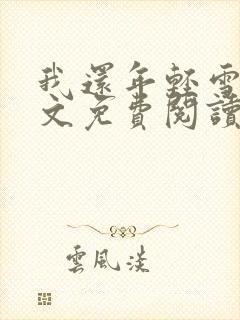 我還年輕雪
文免費閱讀
雲風淡